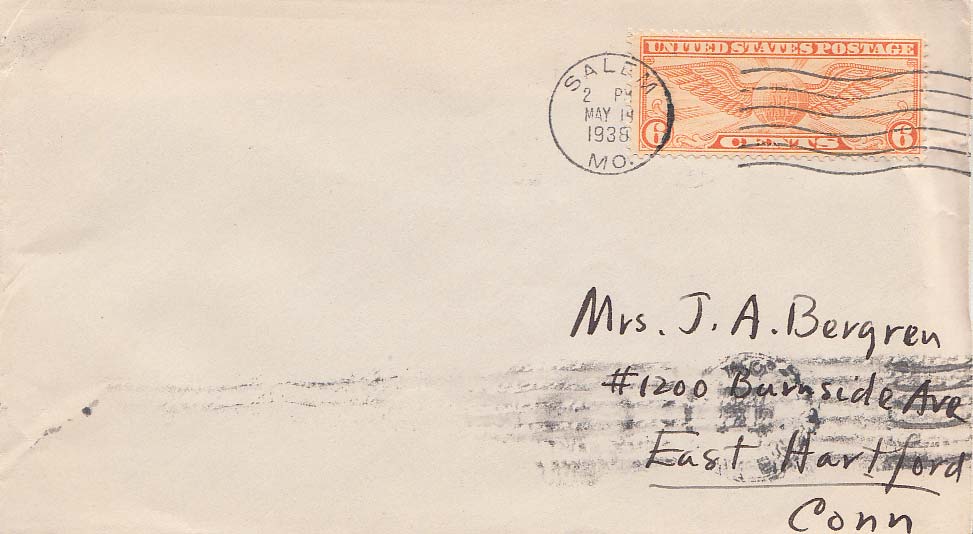 UNITED STATES POSTAGE
6 CENTS 6
SALEM
2 PM
MAY 14
1938
MO.
Mrs. J. A. Bergren
#1200 Burnside Ave
East Hartford
Conn